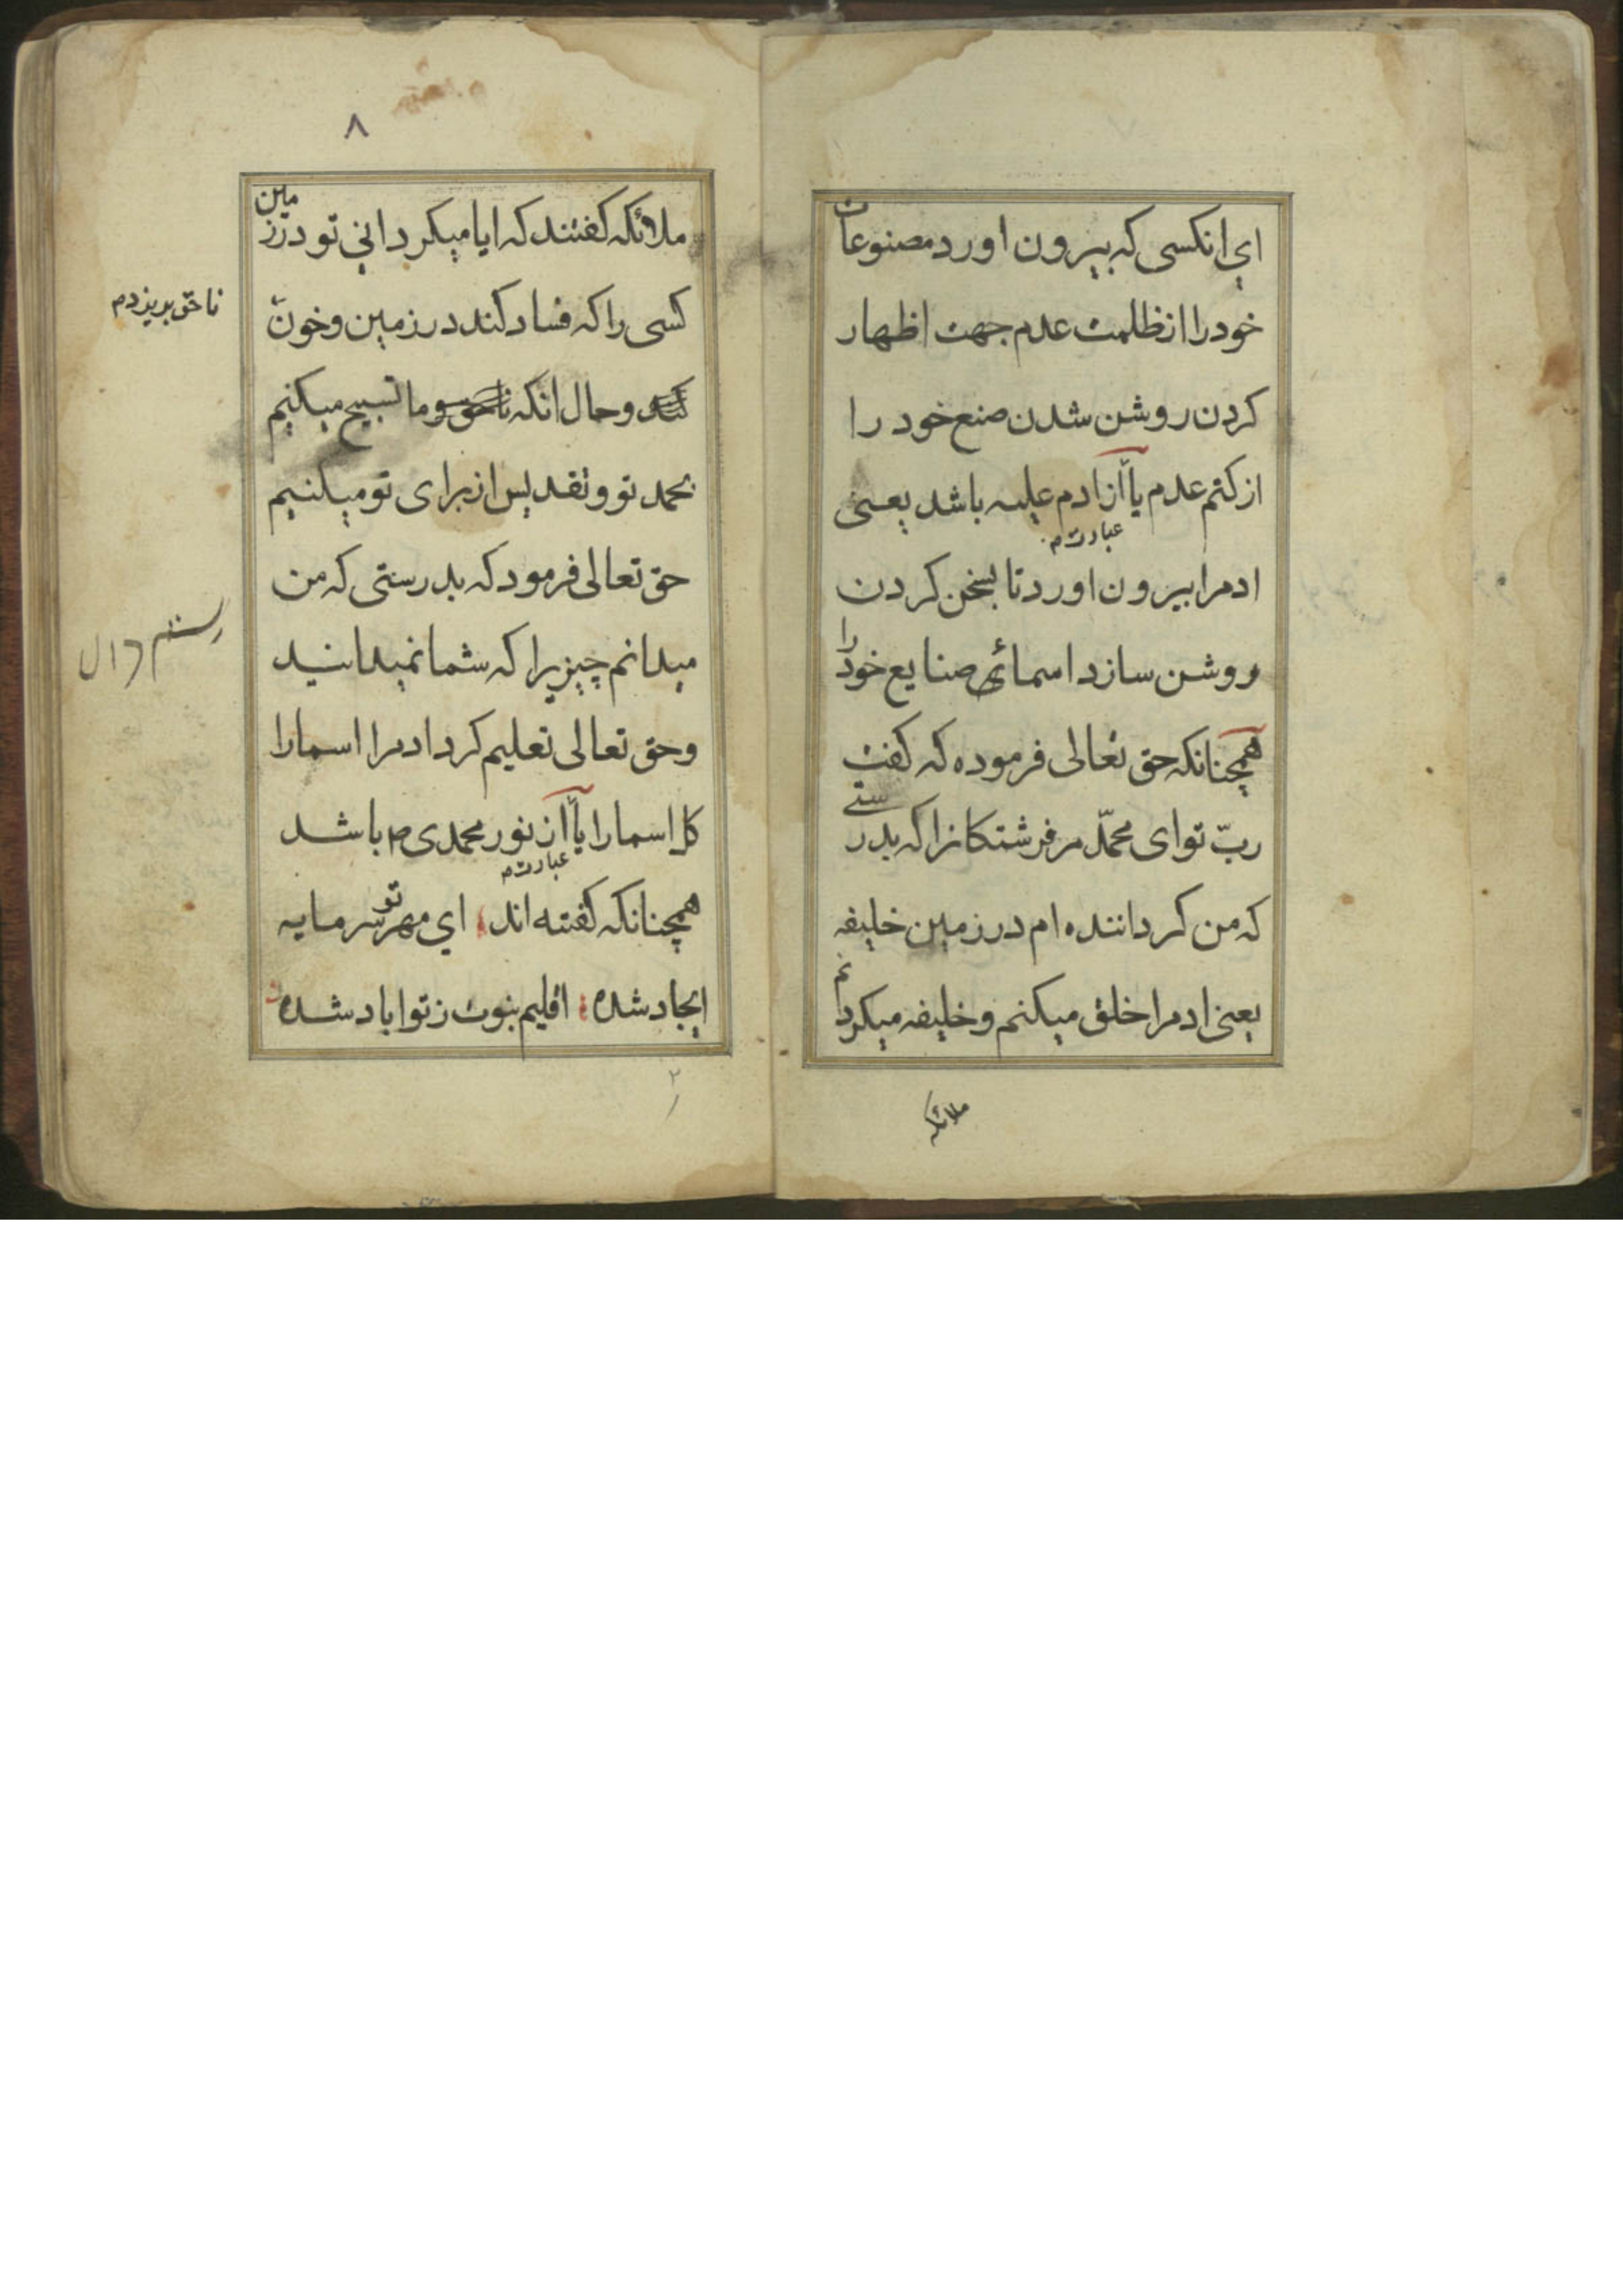 ای انکسی که بیرون اورد مصنوعات
خود را از ظلمت عدم جهت اظهار
کردن روشن شدن صنع خود را
از کتم عدم یا از ادم علیه باشد یعنی
عبارت م
ادمرا بیرون اورد تا بسخن کردن
روشن سازد اسمائی صنایع خود را
همچنانکه حق تعالی فرموده که کفت
ربّ تو ای محمّد مر فرشتکانرا که بدرستی
که من کرداننده ام در زمین خلیفه
یعنی ادمرا خلق میکنم و خلیفه میکردانم
ملائکه
۸
ملائکه کفتند که ایا میکردانی تو در زمین
کسی را که فساد کند در زمین و خون
ناحق بریزد م
کند و حال انکه ناحق و ما تسبیح میکنیم
بحمد تو و تقدیس از برای تو میکنیم
حق تعالی فرمود که بدرستی که من
میدانم چیزیرا که شما نمیدانید
و حق تعالی تعلیم کرد ادمرا اسما را
کل اسما را یا از نور محمدی ص باشد
عبارت م
همچنانکه کفته اند ای مهر تو سرمایه
ایجاد شده اقلیم نبوت ز تو اباد شده
۲